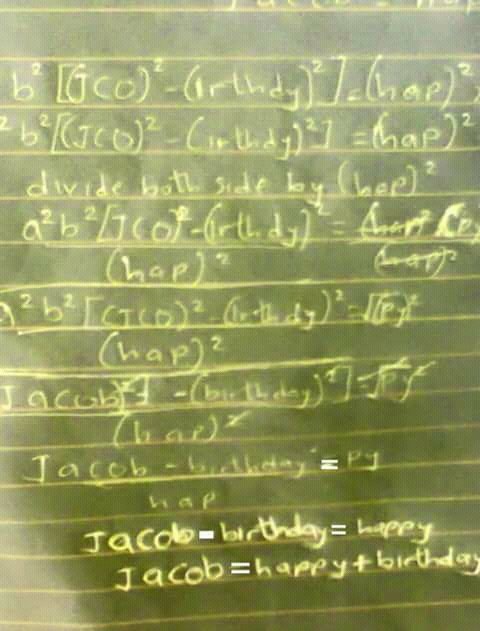 b² [(JCO)² - (irthdy)²] = (hap)²
²b²[(JCO)² - (irthdy)²] = (hap)²
divide both side by (hap)²
a²b²[JCO)² - (irthdy)² = (hap)² (py
(hap)² (hap)²
a²b² [(JCO)² - (irthdy)² = √(py)²
(hap)²
Jacob)²] - (birthday)²] = √py²
(hap)²
Jacob - birthday = py
hap
Jacob - birthday = happy
Jacob = happy + birthday